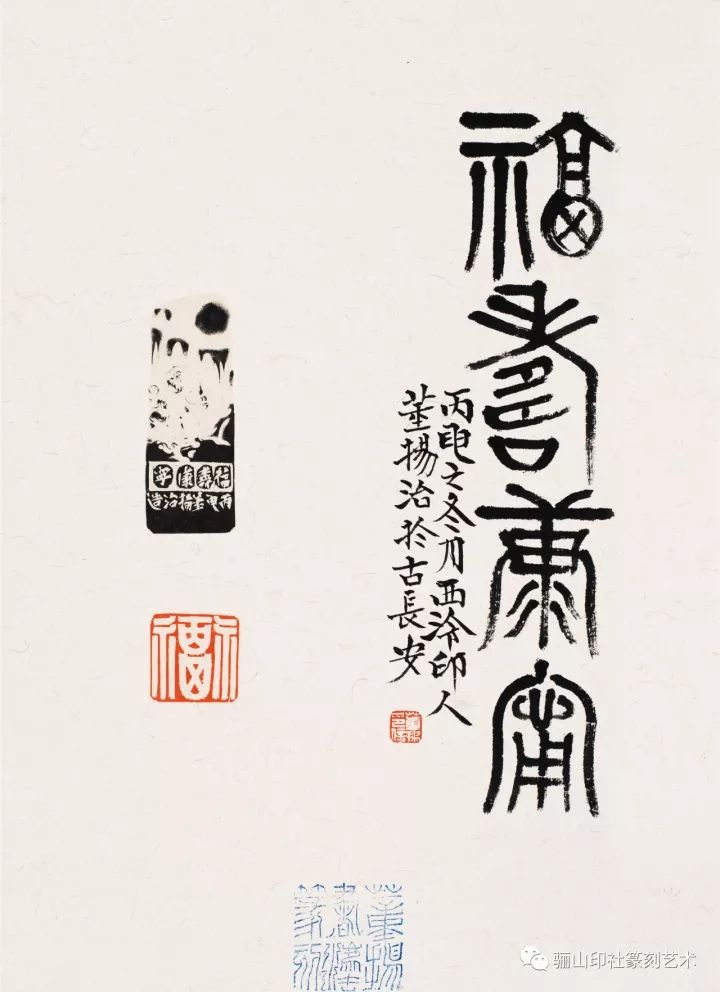 福壽康甯
丙申之冬月西泠印人
董揚治於古長安
丙申董揚治造
福
董揚書法篆刻
骊山印社篆刻艺术